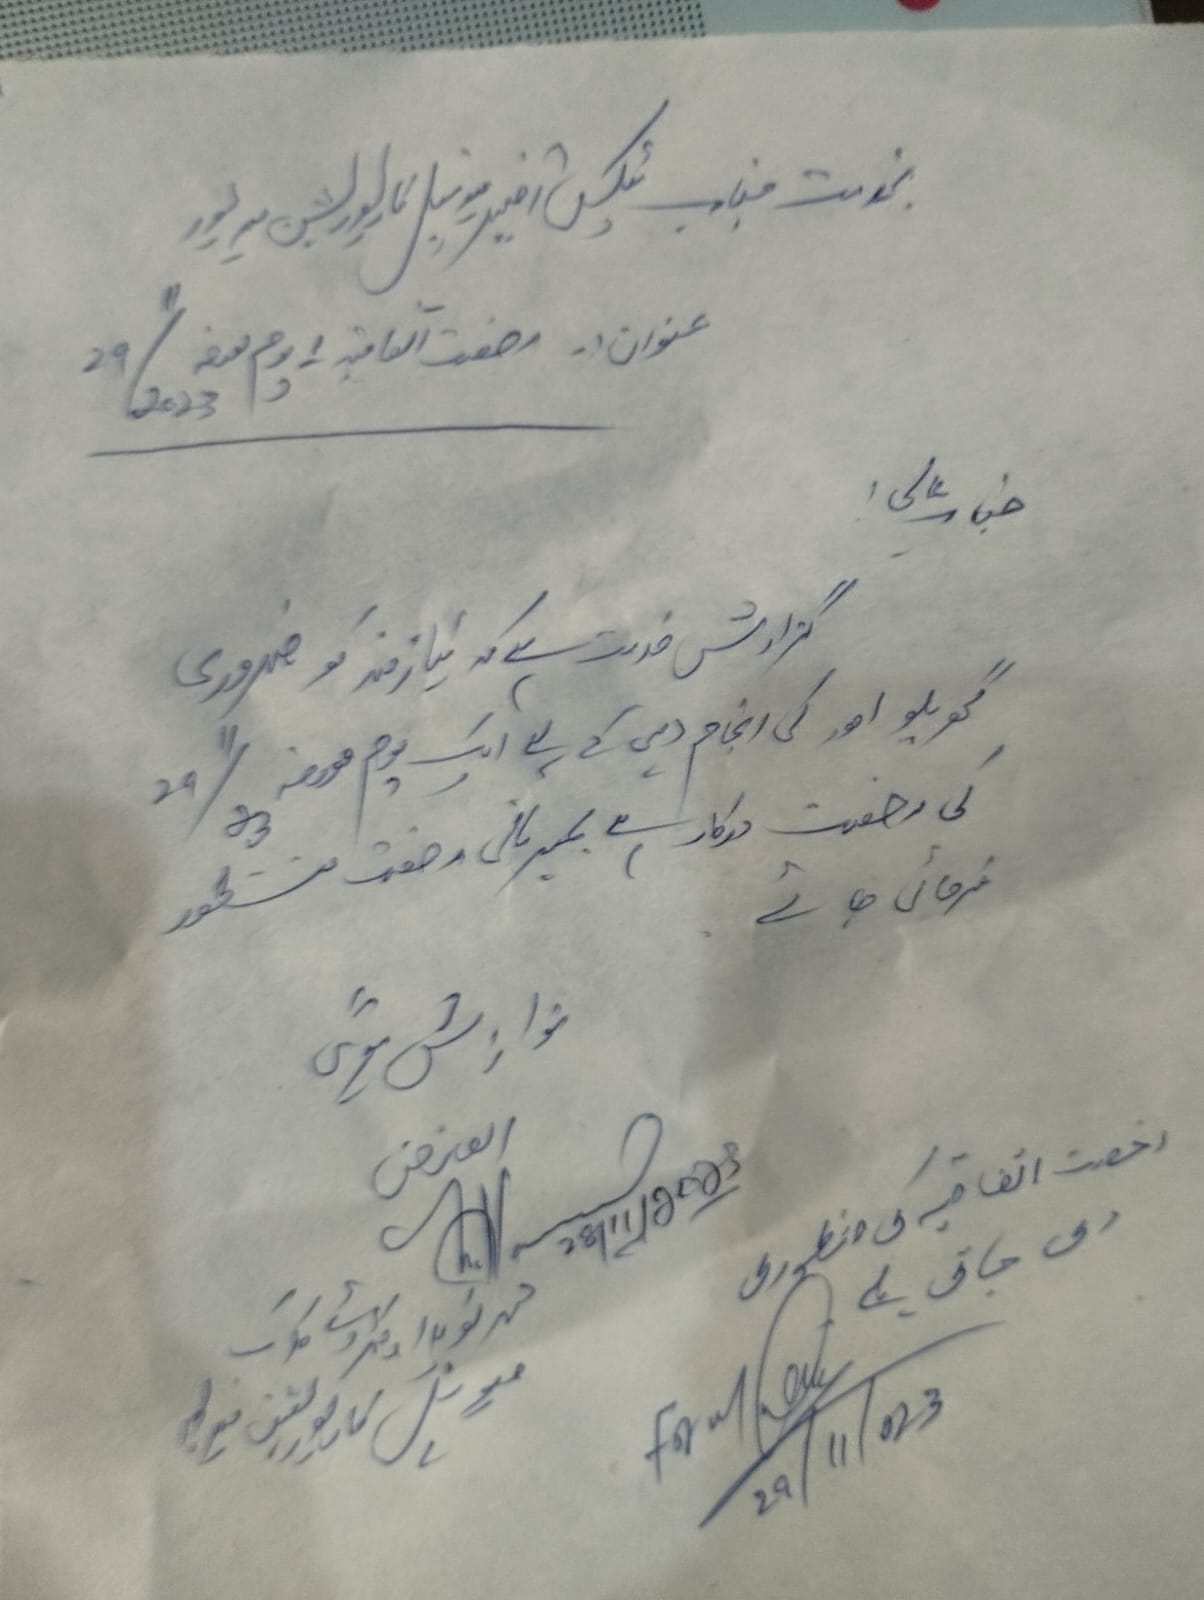 بخدمت جناب ٹیکس آفیسر میونسپل کارپوریشن میرپور
عنوان :۔ رخصت اتفاقیہ 1 یوم مورخہ 29/11/2023
جناب عالی !
گزارش خدمت ہے کہ نیازمند کو ضروری
گھریلو امور کی انجام دہی کے لیے ایک یوم مورخہ 29/11/23
کی رخصت درکار ہے بمہربانی رخصت منظور
فرمائی جائے .
نوازش ہوگی
العارض
28/11/2023
میونسپل کارپوریشن میرپور
رخصت اتفاقیہ کی منظوری
دی جاتی ہے
29/11/023